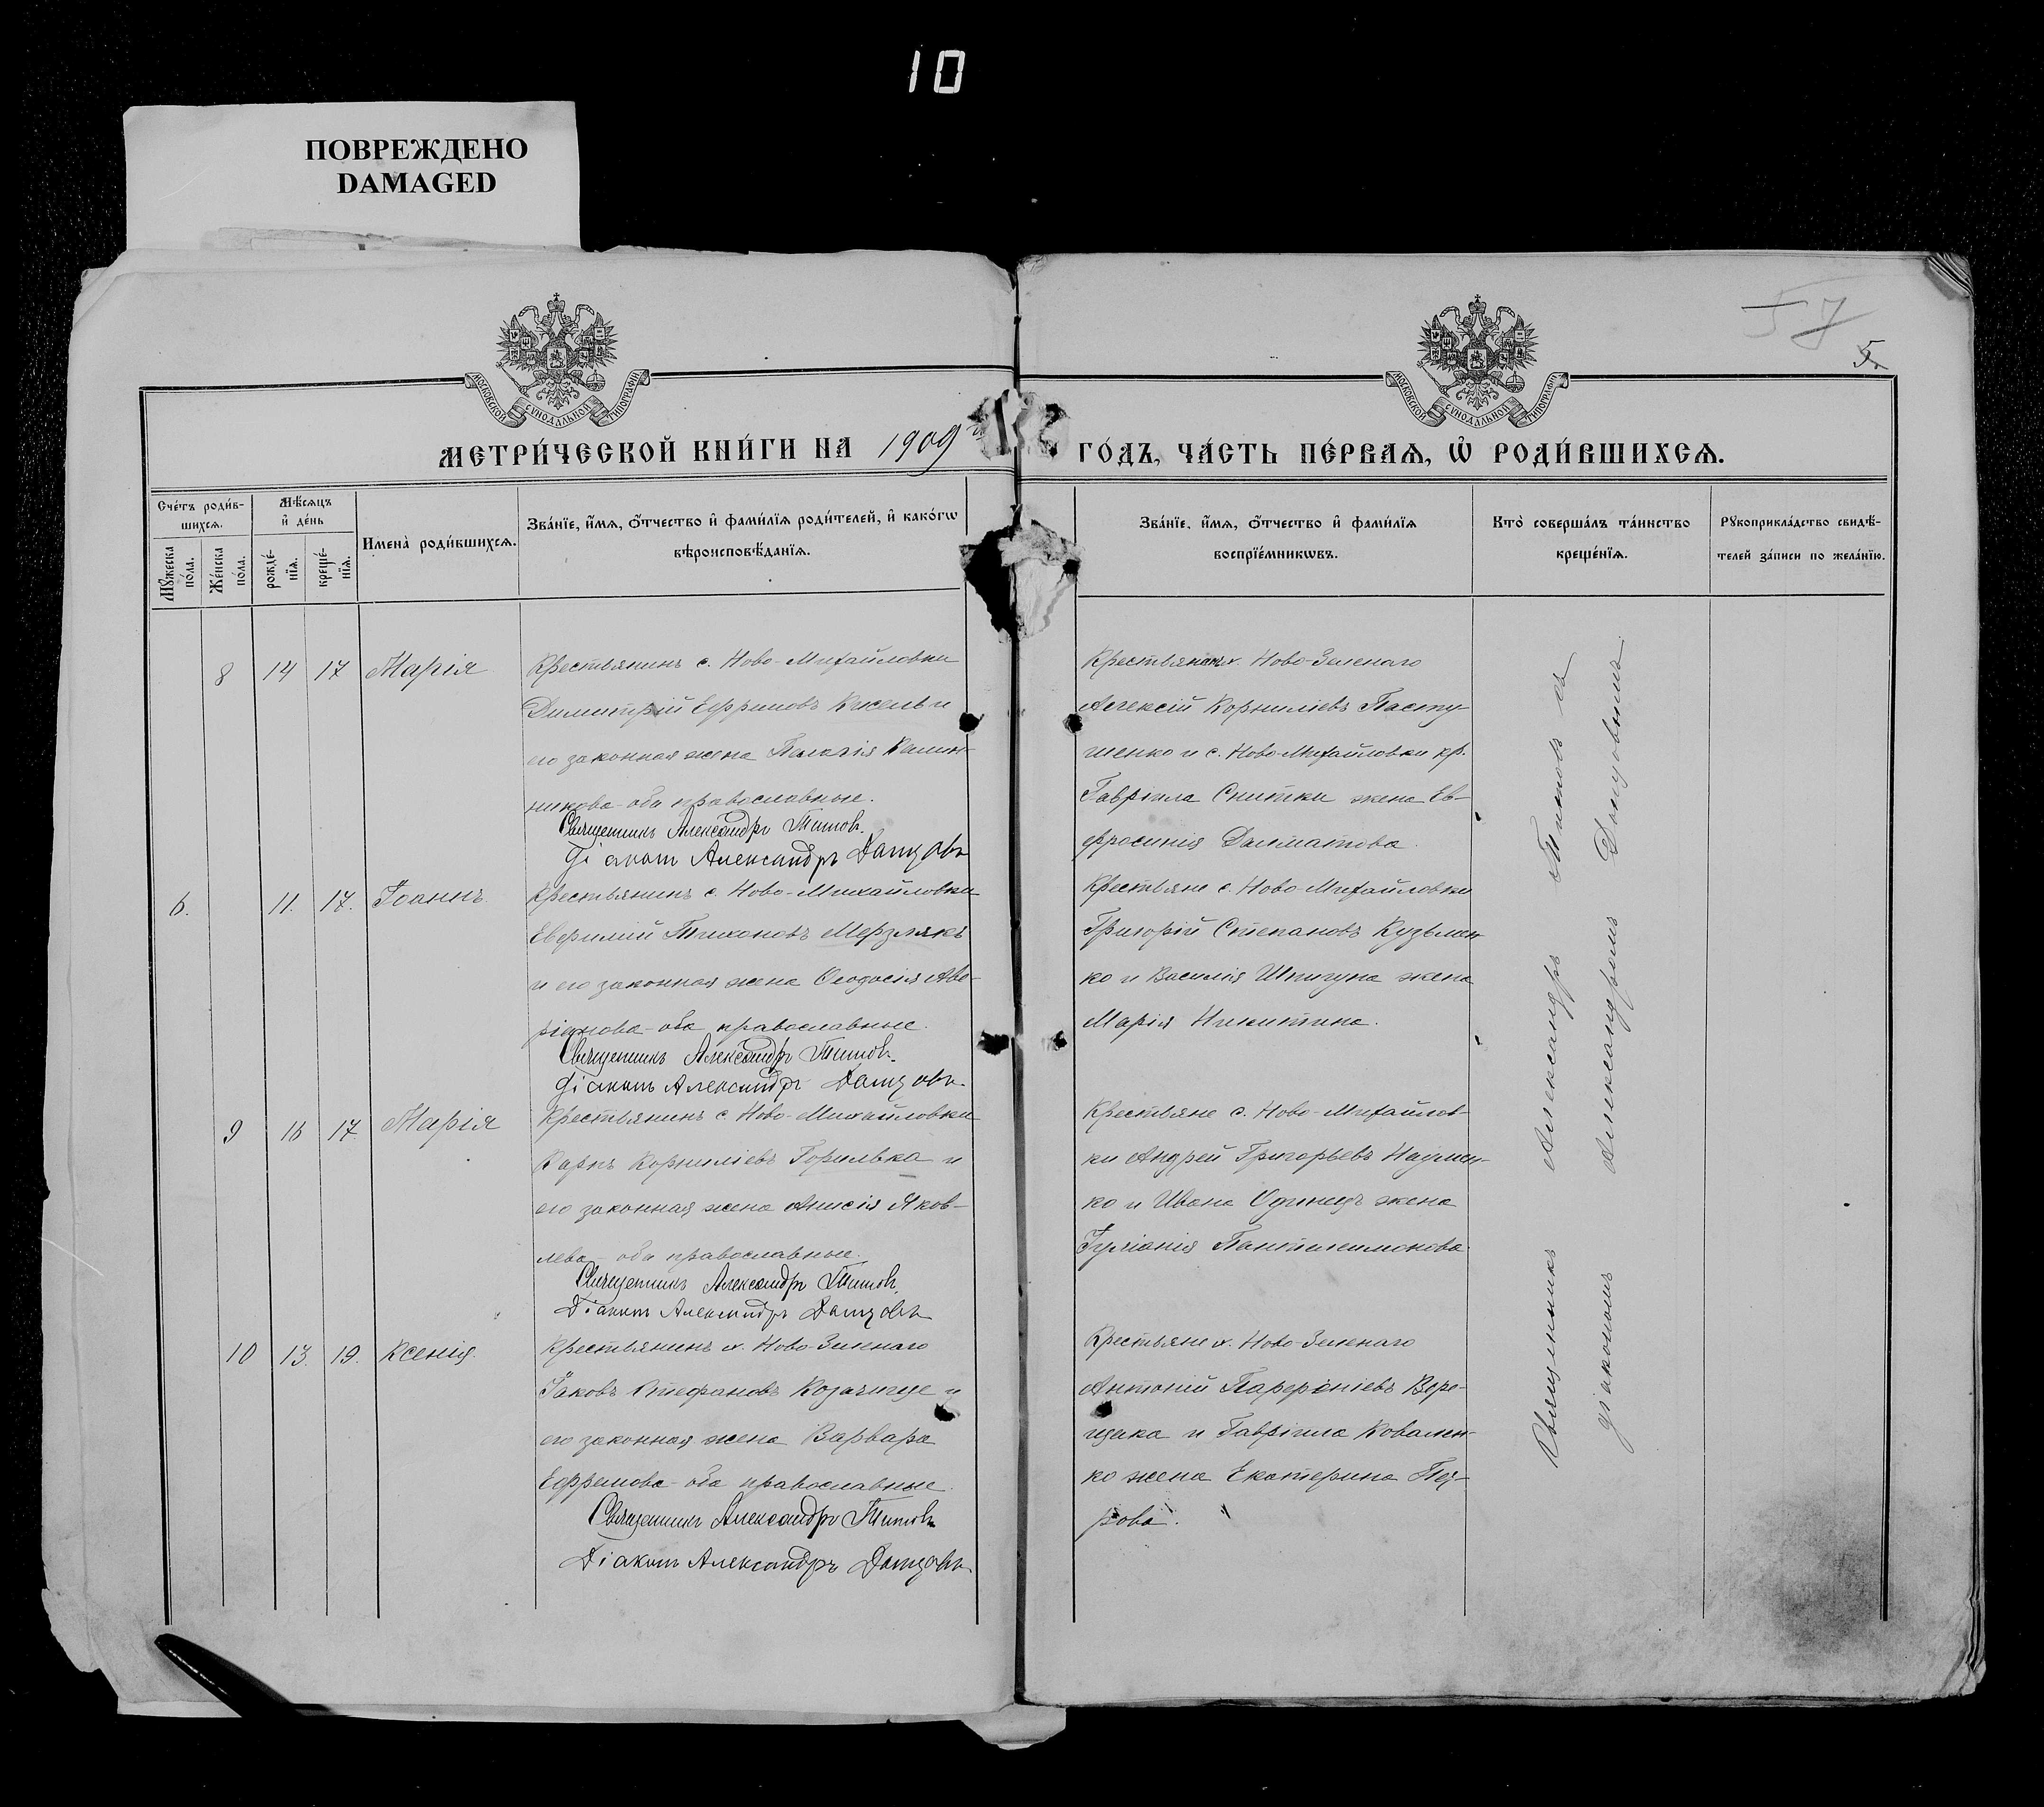 10
ПОВРЕЖДЕНО
DAMAGED
57
5.
МОСКОВСКОЙ СѴНОДАЛЬНОЙ ТИПОГРАФІИ
МОСКОВСКОЙ СѴНОДАЛЬНОЙ ТИПОГРАФІИ
МЕТРИ́ЧЕСКОЙ КНИ́ГИ НА 1909
ГО́ДЪ, ЧА́СТЬ ПЕ́РВАѦ, Ѡ҆ РОДИ́ВШИХСѦ.
Сче́тъ роди́в-
шихсѧ.
Мꙋ́жеска по́ла.
Же́нска по́ла.
Мѣ́сѧцъ
и҆ де́нь
рожде́-
нїѧ.
креще́-
нїѧ.
Имена̀ роди́вшихсѧ.
Зва́нїе, и҆́мѧ, ѻ҆́тчество и҆ фами́лїѧ роди́телей, и҆ како́гѡ
вѣроисповѣ́данїѧ.
Зва́нїе, и҆́мѧ, ѻ҆́тчество и҆ фами́лїѧ
воспрїе́мникѡвъ.
Кто̀ соверша́лъ та́инство
креще́нїѧ.
Рꙋкоприкла́дство свидѣ́-
телей за́писи по жела́нїю.
8 14 17 Марія
Крестьянинъ с. Ново-Михайловки
Димитрій Ефремовъ Кисель и
его законная жена Пелагія Калин-
никова оба православные.
Священникъ Александръ Титовъ.
Діаконъ Александръ Датцовъ
Крестьянинъ х. Ново-Зеленаго
Алексій Корниліевъ Пасту-
шенко и с. Ново-Михайловки кр.
Гавріила Снитки жена Ев-
фросинія Далматова.
6. 11. 17. Іоаннъ.
Крестьянинъ с. Ново-Михайловки
Евфимій Тихоновъ Мерзлякъ
и его законная жена Ѳеодосія Аве-
ріанова оба православные.
Священникъ Александръ Титовъ.
Діаконъ Александръ Датцовъ.
Крестьяне с. Ново-Михайловки
Григорій Степановъ Кузьмен-
ко и Василія Шпигуна жена
Марія Никитина.
9 16 17 Марія
Крестьянинъ с. Ново-Михайловки
Карпъ Корниліевъ Горилька и
его законная жена Анисія Яков-
лева оба православные.
Священникъ Александръ Титовъ.
Діаконъ Александръ Датцовъ
Крестьяне с. Ново-Михайлов-
ки Андрей Григорьевъ Наумен-
ко и Ивана Одинецъ жена
Іуліанія Пантилеимонова.
10 13. 19. Ксенія.
Крестьянинъ х. Ново-Зеленаго
Іаковъ Стефановъ и
его законная жена Варвара
Ефремова оба православные.
Священникъ Александръ Титовъ
Діаконъ Александръ Датцовъ.
Крестьяне х. Ново-Зеленаго
Антоній Парфеніевъ Вере-
щака и Гавріила Ковален-
ко жена Екатерина
рова.
Священникъ Александръ Титовъ съ
діакономъ Александромъ Датцовымъ